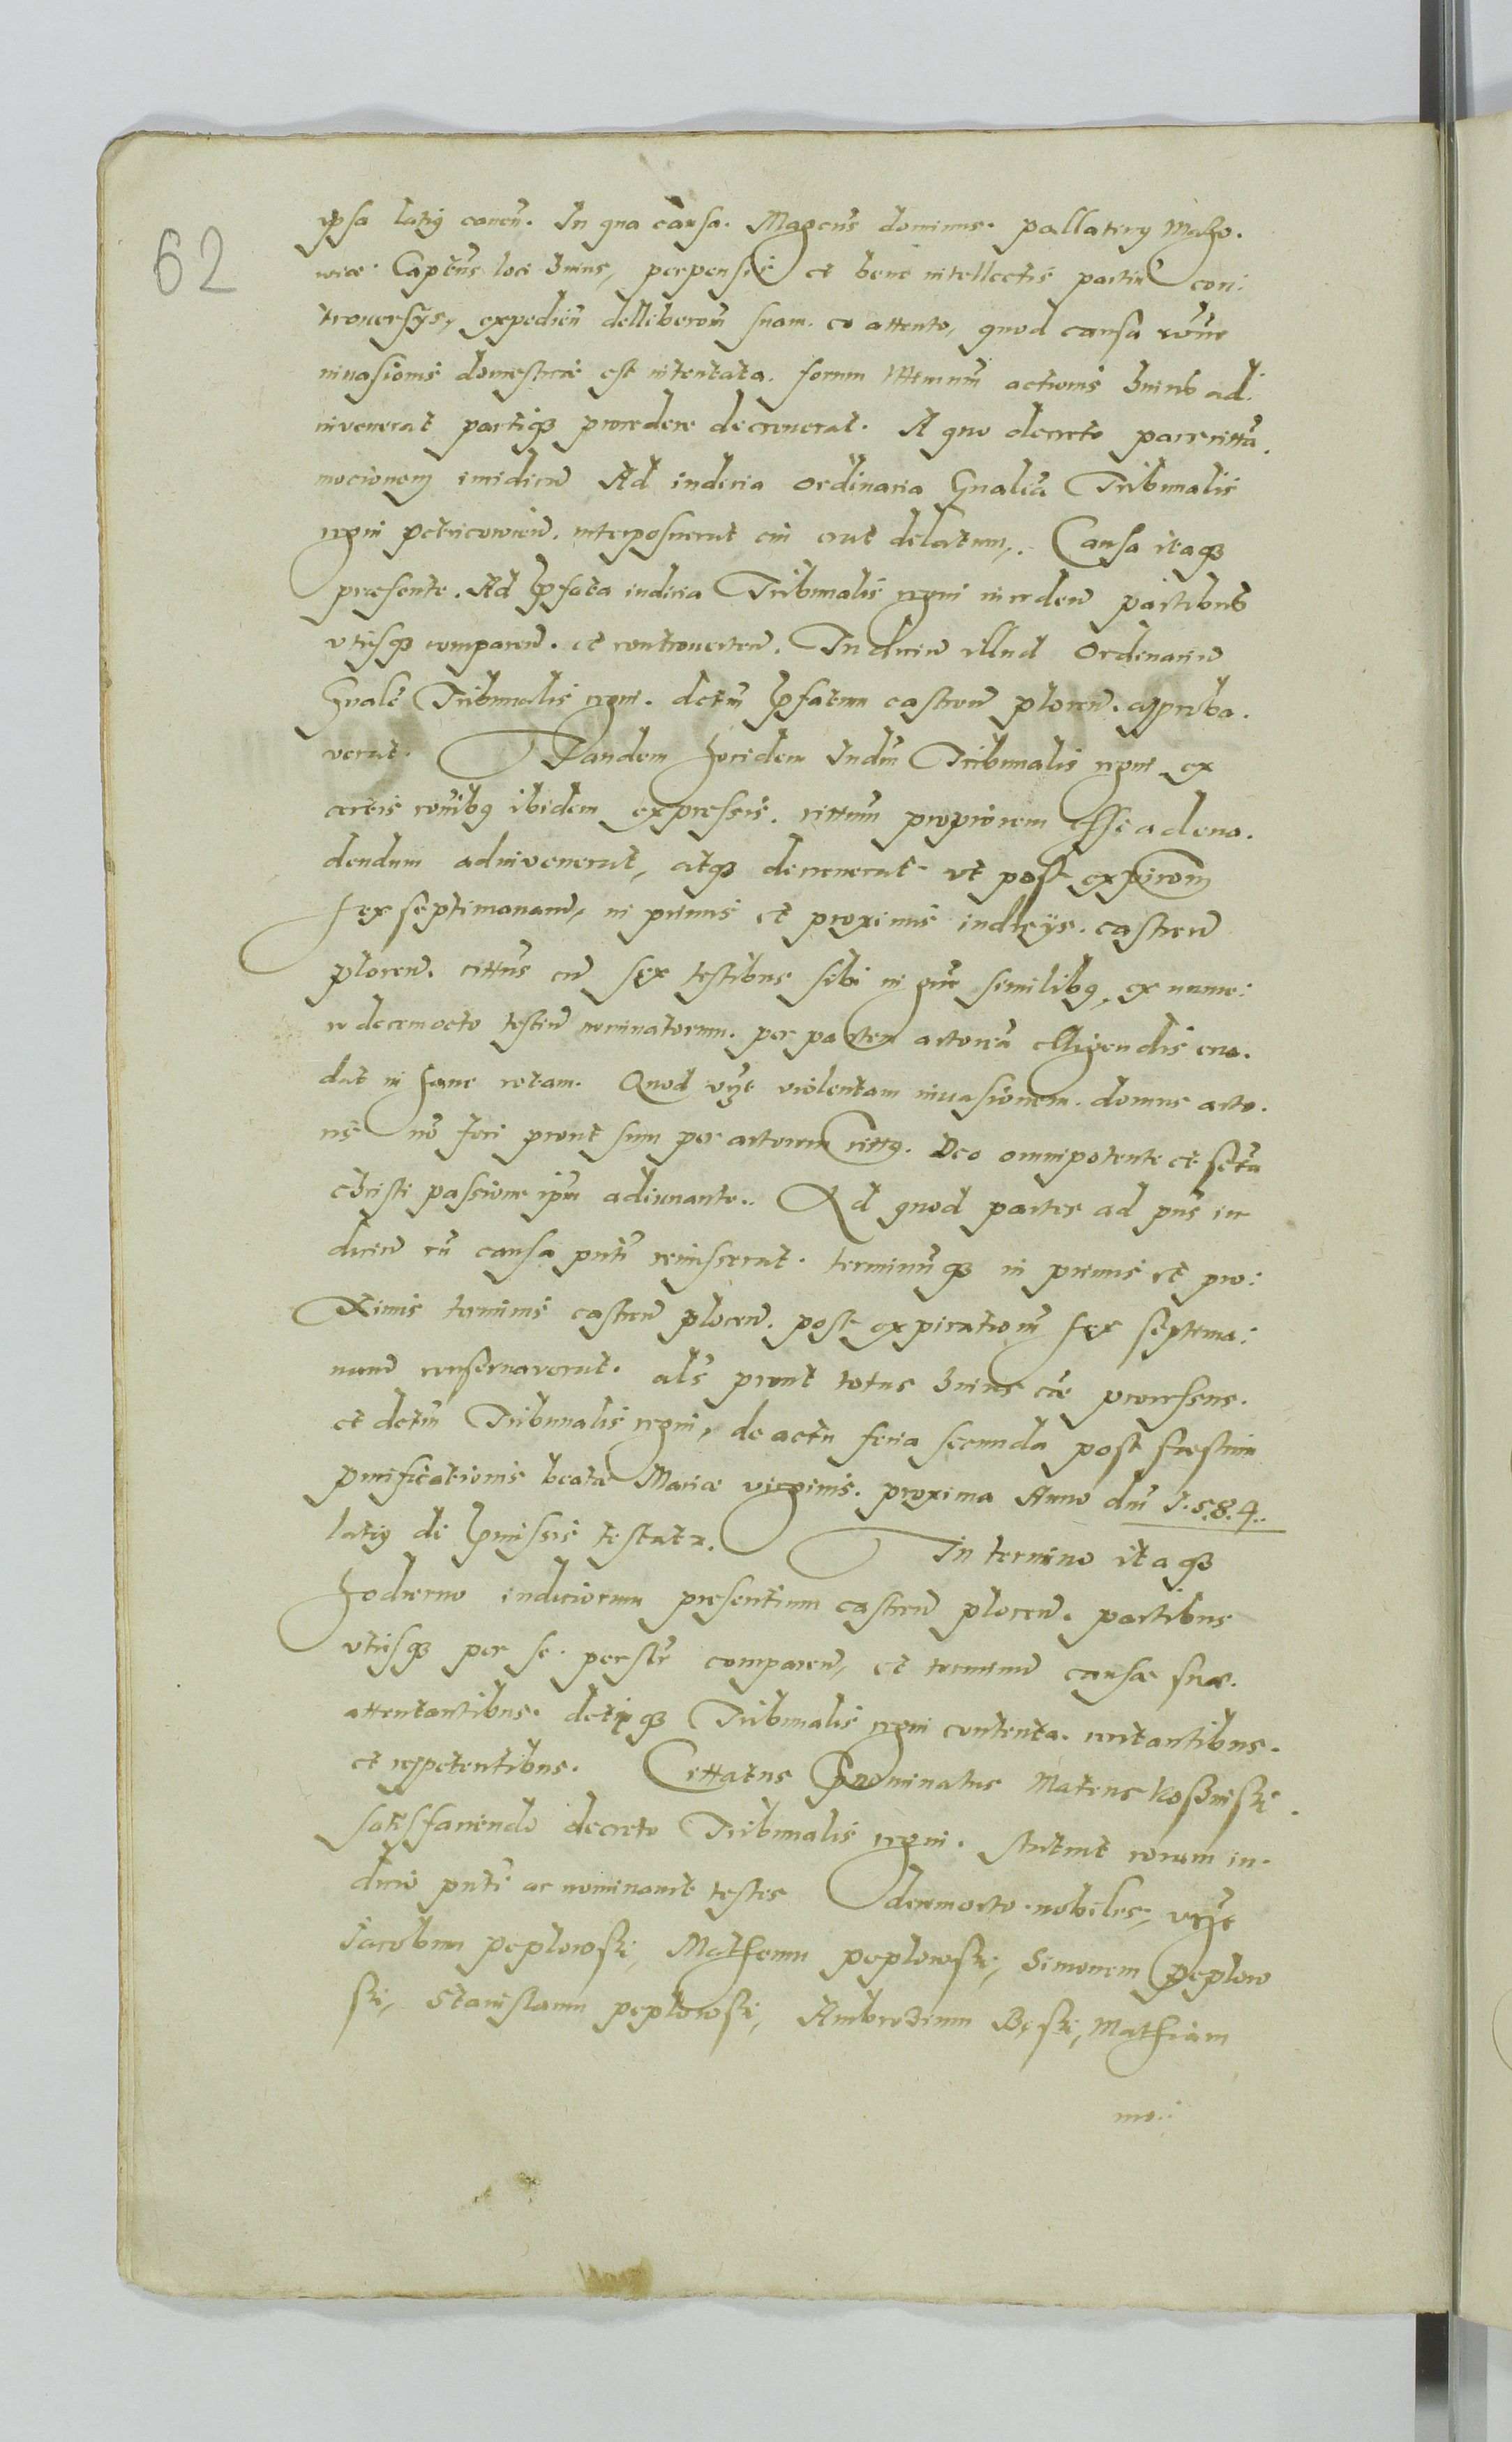 62
ipsa latiꝰ canen̄. In qua causa. Magcūs dominus. pallatinꝰ Mazo.
uiae Captūs loci huius, perpensis et bene intellectis partiū con:
trouersijs, expedien̄ delliberoēm suam. eo attento, quod causa roūe
inuasionis domesticae est intentata. forum actionis huius ad:
invenerat partiqȝ procedere decreuerat. A quo decreto pars cittā.
mocionem iuridicā Ad iudicia ordinaria Gn̄alia Tribunalis
regni petricouien̄. interposuerat cui erat delatum. Causa itaqȝ
praesente. Ad p̄fata iudicia Tribunalis regni inciden̄ partibus
vtrisqȝ comparen̄. et controuerten̄. Iudiciū illud Ordinariū
Gn̄ale Tribunalis regni. dctūm p̄fatum castren̄ plocen̄. approba.
verat. Tandem hocidem Iudm̄ Tribunalis regni ex
certis roīnibꝰ ibidem expressis. cittm̄ propiorem esse ad eua.
dendum adinvenerat, atqȝ decreuerat vt post expiroēm
sex septimanarū, in primis et proximis iudicijs. castren̄
plocen̄. cittūs cū sex testibus sibi in gn̄e similibꝰ, ex nume:
ro decemocto testiū nominatorum. per partem actoreā elligendis eua.
dat in hanc rotam. Quod vizt violentam inuasionem. domus acto.
ris nō feci prout sum per actorem cittꝰ. Deo omnipotente et scta
christi passione ipm̄ adiuuante.. Ad quod partes ad pn̄s iu
diciū cū causa pn̄ti remisserat. terminūqȝ in primis et pro:
ximis terminis castren̄ plocen̄. post expirationē sex septima:
narū conseruaverat. als prout totus huius cāe processus.
et dctūm Tribunalis regni, de actu feria secunda post festum
purificationis beatae Mariae virginis. proxima Anno dnī 1.5.8.4..
latiꝰ de p̄missis testatr. In termino itaqȝ
hodierno iudiciorum presentium castren̄ plocen̄. partibus
vtrisqȝ per se. persr̄ comparen̄, et terminū causae suae.
attentantibus. dctiqȝ Tribunalis regni contenta. recitantibus.
et reppetentibus. Cittatus p̄nominatus Mateus
satisfaciendo decreto Tribunalis regni. statuit coram iu.
dicio pn̄ti ac nominauit testes decemocto nobiles, vizt
Jacobum peplowski, Matheum peplowski, Simonem peplow
ski, Stanislaum peplowski, Ambrosium Bęski, Mathiam
mo: